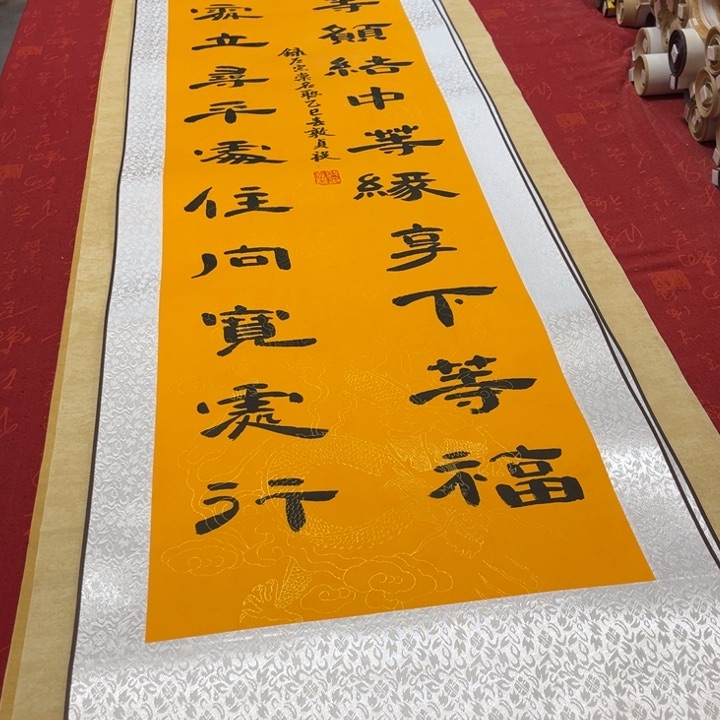 等願結中等緣享下等福
處立尋平處住向寬處行
錄左宗棠名聯乙巳